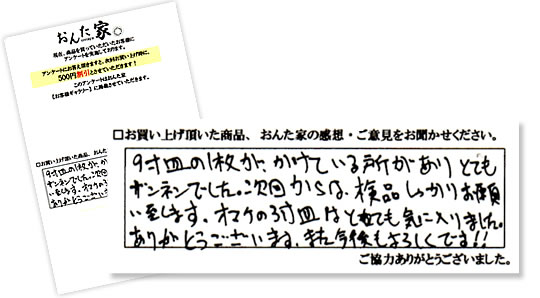 おんた家
現在、商品を買っていただいたお客様に
アンケートを実施しております。
アンケートにお答え頂きますと、次回お買い上げ時に、
500円割引とさせていただきます！
このアンケートはおんた家
【お客様ギャラリー】に掲載させていただきます。
□お買い上げ頂いた商品、おんた
□お買い上げ頂いた商品、おんた家の感想・ご意見をお聞かせください。
9寸皿の1枚が、かけている所があり とても
ザンネンでした。次回からは、検品しっかりお願
い致します。オマケの3寸皿はとても気に入りました。
ありがとうございます。また今後もよろしくです!!
ご協力ありがとうございました。